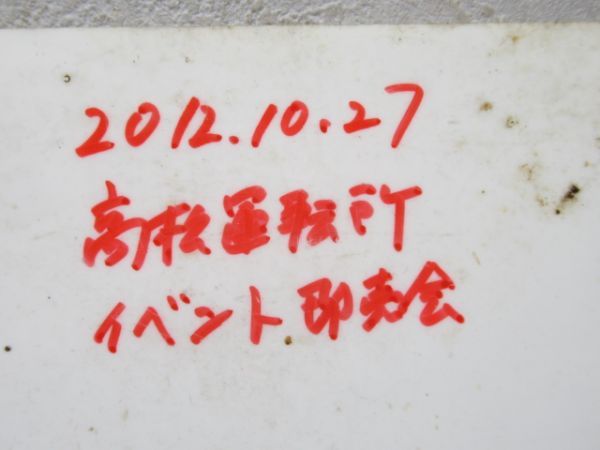 2012.10.27
高松運転所
イベント即売会